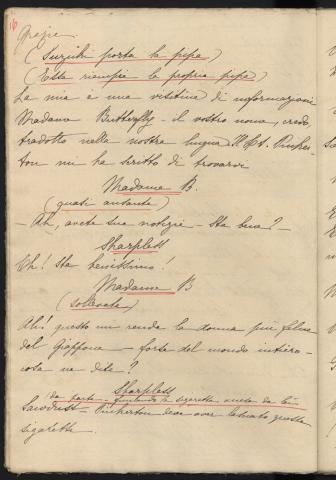 16
Grazie.
(Suzuki porta la pipa)
(Essa riempie la propria pipa)
La mia è una visitina di informazioni
Madama Butterfly - il vostro nome, credo,
tradotto nella nostra lingua. Il Sig. Pinker-
ton mi ha scritto di trovarvi
Madame B.
(quasi ansante)
- Ah, avete sue notizie - Sta bene? -
Sharpless
Oh! Sta benissimo!
Madame B
(sollevata)
Ah! questo mi rende la donna più felice
del Giappone - forse del mondo intiero -
cosa ne dite?
Sharpless
da parte - le sigarette
Sawdust - Pinkerton deve aver lasciato queste
sigarette.